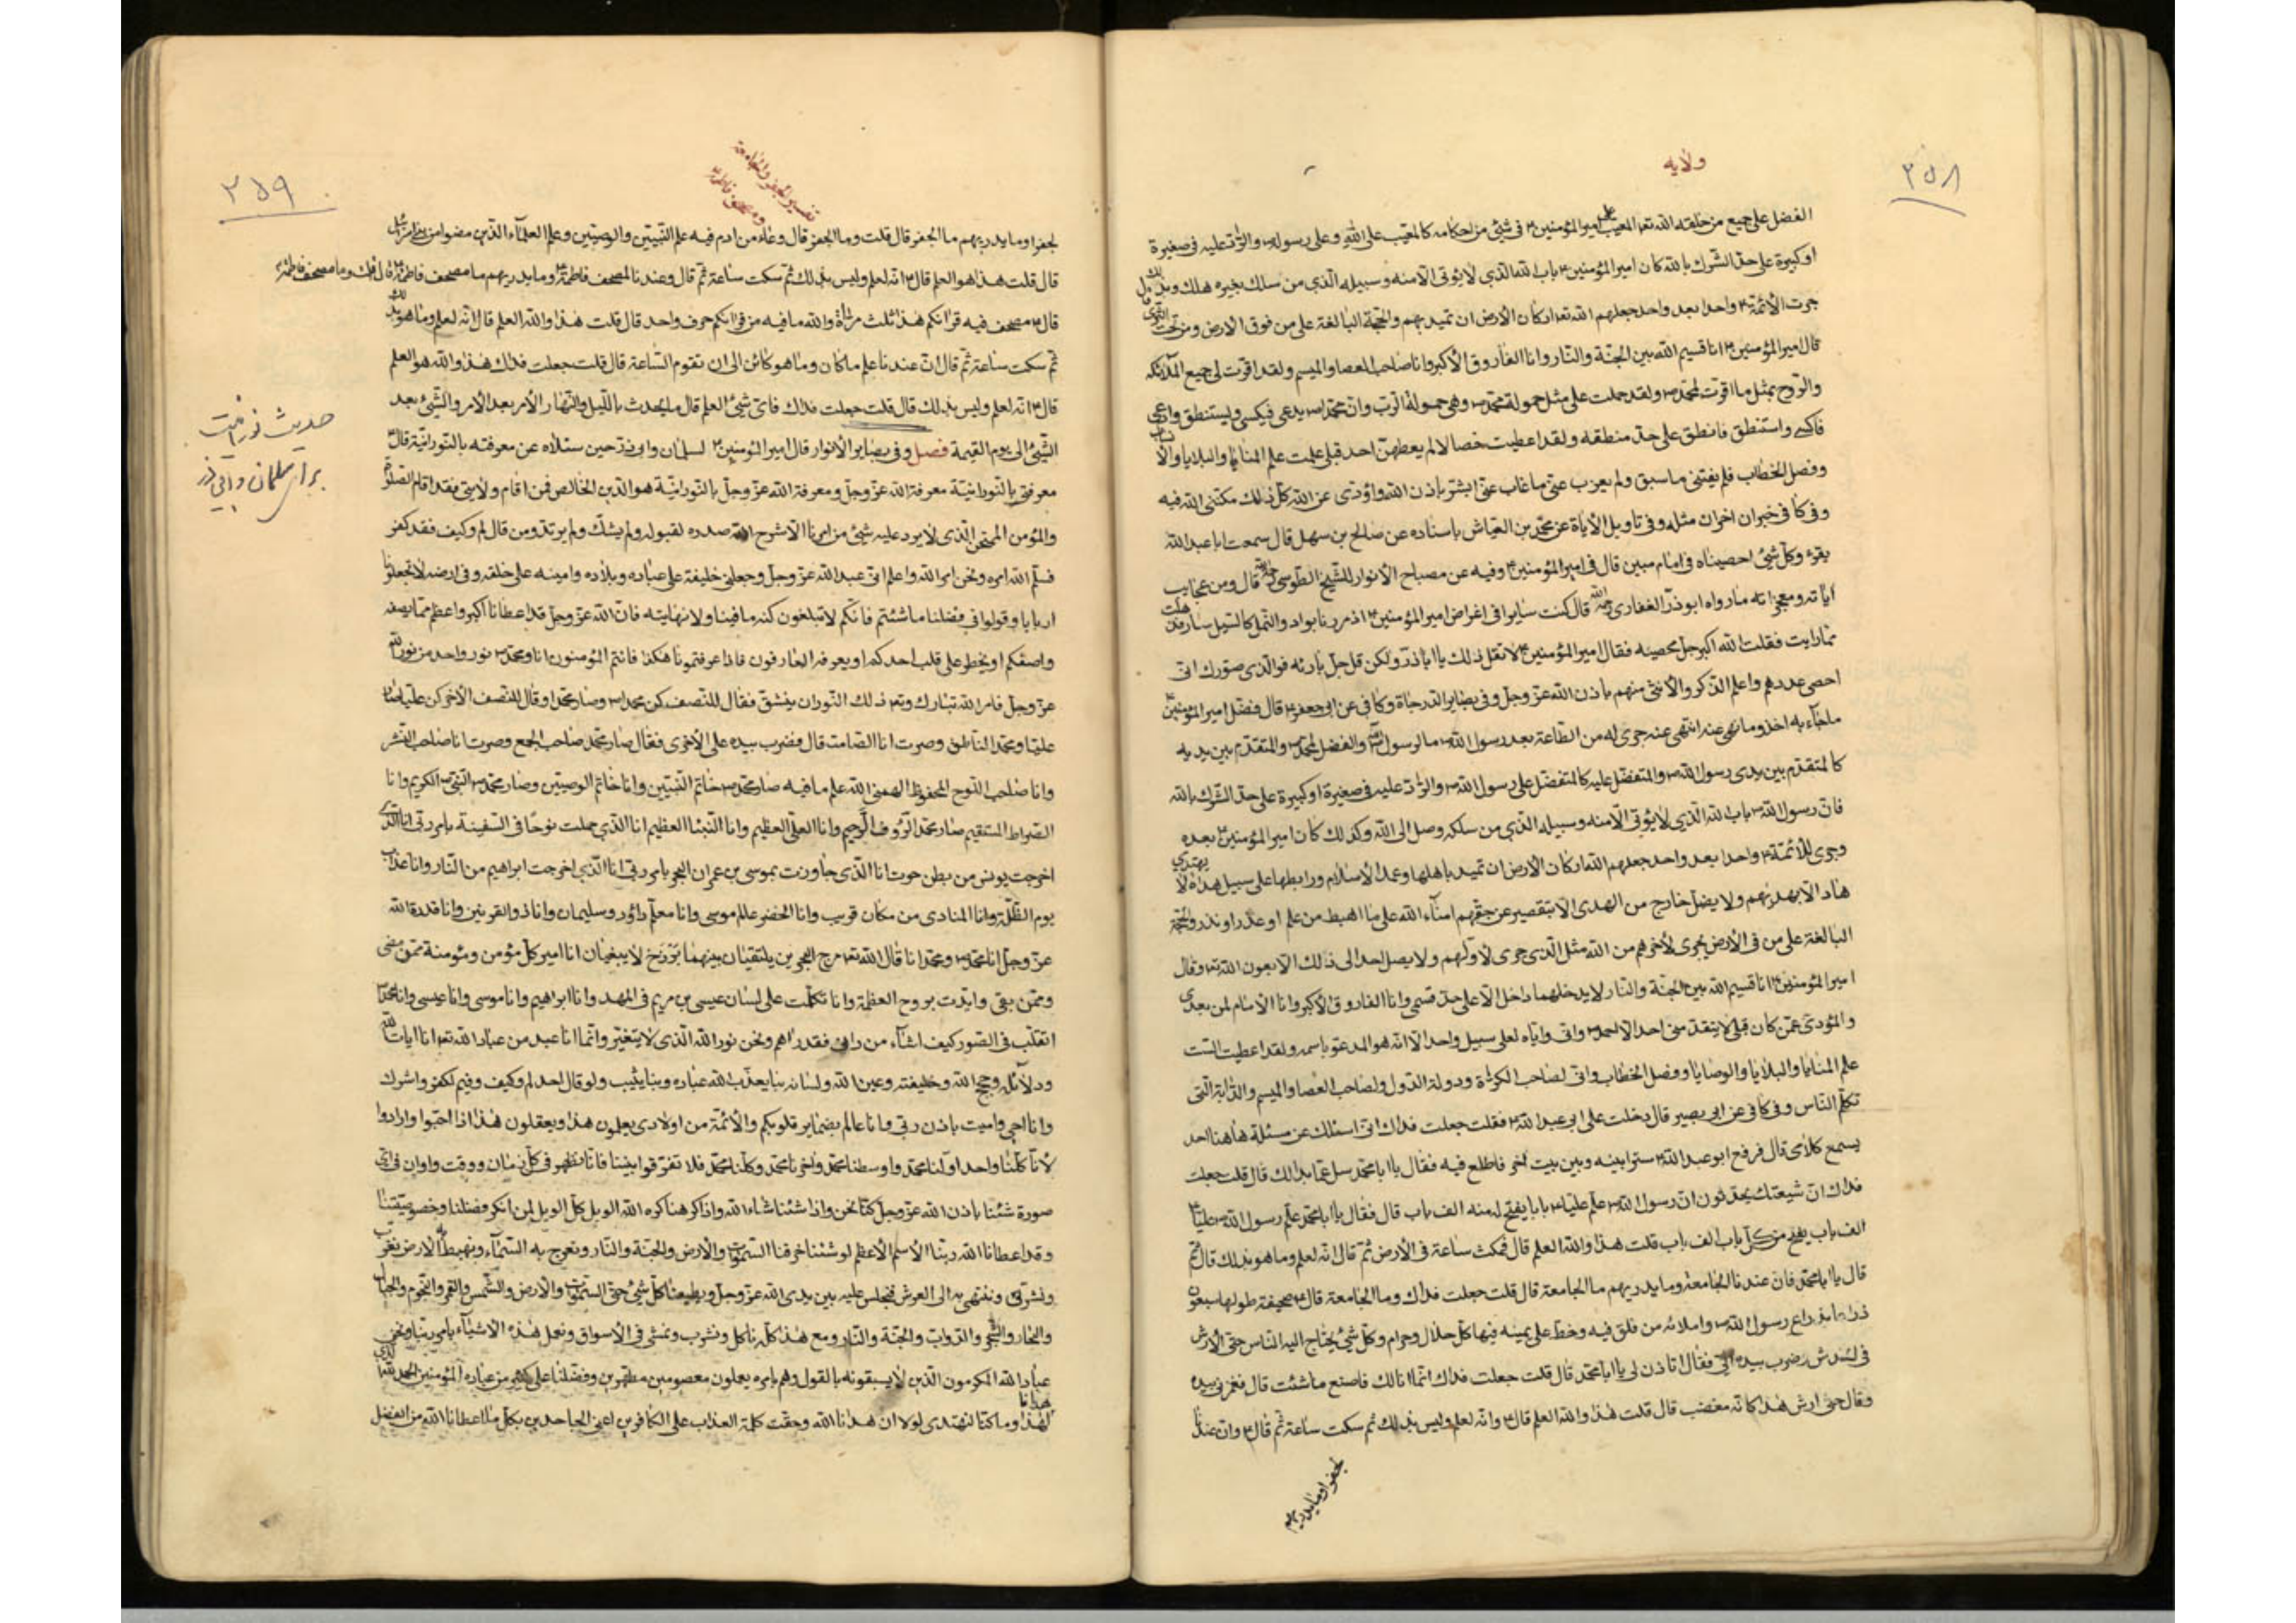 ٢٥٨
ولايه
الفضل على جميع من خلقه الله تعا المعيب على امير المؤمنين ۴ فى شئ من احكامه كالمعيب على الله وعلى رسوله ص والراد عليه فى صغيرة
او كبيرة على حد الشرك بالله كان امير المؤمنين ۴ باب الله الذى لا يؤتى الا منه وسبيله الذى من سلك بغيره هلك وبذلك
جرت الائمة ۴ واحدا بعد واحد جعلهم الله تعا اركان الارض ان تميد بهم والحجة البالغة على من فوق الارض ومن تحت الثرى
قال امير المؤمنين ۴ انا قسيم الله بين الجنة والنار وانا الفاروق الاكبر وانا صاحب العصا والميسم ولقد اقرت لى جميع الملائكه
والروح بمثل ما اقرت لمحمد ص ولقد حملت على مثل حمولة محمد ص وهى حمولة الرب وان محمدا ص يدعى فيكسى ويستنطق وادعى
فاكسى واستنطق فانطق على حد منطقه ولقد اعطيت خصالا لم يعطهن احد قبلى علمت علم المنايا والبلايا والانساب
وفصل الخطاب فلم يفتنى ما سبق ولم يعزب عنى ما غاب عنى ابشر باذن الله واؤدى عن الله كل ذلك مكننى الله فيه
وفى كا فى خبران اخران مثله وفى تاويل الاياة عن محمد بن العياش باسناده عن صالح بن سهل قال سمعت ابا عبد الله
يقرء وكل شئ احصيناه فى امام مبين قال فى امير المؤمنين ۴ وفيه عن مصباح الانوار للشيخ الطوسى ره قال ومن عجايب
اياته ومعجزاته ما رواه ابو ذر الغفارى ره قال كنت سايرا فى اغراض امير المؤمنين ۴ اذ مررنا بواد والنمل كالسيل سار فذهلت
مما رايت فقلت الله اكبر جل محصيه فقال امير المؤمنين ۴ لا تقل ذلك يا ابا ذر ولكن قل جل بارئه فوالذى صورك انى
احصى عددهم واعلم الذكر والانثى منهم باذن الله عز وجل وفى بصاير الدرجاة وكا فى عن ابى جعفر ۴ قال فضل امير المؤمنين ۴
ماجآء به اخذ وما نهى عنه انتهى عنه جرى له من الطاعة بعد رسول الله ص ما لرسول الله ص والفضل لمحمد ص والمتقدم بين يديه
كالمتقدم بين يدى رسول الله ص والمتفضل عليه كالمتفضل على رسول الله ص والراد عليه فى صغيرة او كبيرة على حد الشرك بالله
فان رسول الله ص باب الله الذى لا يؤتى الا منه وسبيله الذى من سلكه وصل الى الله وكذلك كان امير المؤمنين ۴ بعده
وجرى للائمة ۴ واحدا بعد واحد جعلهم الله اركان الارض ان تميد باهلها وعمد الاسلام ورابطها على سبيل هداه لا يهتدى
هاد الا بهديهم ولا يضل خارج من الهدى الا بتقصير عن حقهم امنآء الله على ما اهبط من علم او عذر او نذر والحجة
البالغة على من فى الارض يجرى لاخرهم من الله مثل الذى جرى لاولهم ولا يصل احد الى ذلك الا بعون الله تعا وقال
امير المؤمنين ۴ انا قسيم الله بين الجنة والنار لا يدخلهما داخل الا على حد قسمى وانا الفاروق الاكبر وانا الامام لمن بعدى
والمؤدى عمن كان قبلى لا يتقدمنى احد الا احمد ص وانى واياه لعلى سبيل واحد الا انه هو المدعو باسمه ولقد اعطيت الست
علم المنايا والبلايا والوصايا وفصل الخطاب وانى لصاحب الكرات ودولة الدول ولصاحب العصا والميسم والدابة التى
تكلم الناس وفى كا فى عن ابى بصير قال دخلت على ابى عبد الله ۴ فقلت جعلت فداك انى اسئلك عن مسئلة هاهنا احد
يسمع كلامى قال فرفع ابو عبد الله ۴ سترا بينه وبين بيت اخر فاطلع فيه فقال يا ابا محمد سل عما بدا لك قال قلت جعلت
فداك ان شيعتك يحدثون ان رسول الله ص علم عليا ۴ بابا يفتح له منه الف باب قال فقال يا ابا محمد علم رسول الله ص عليا ۴
الف باب يفتح من كل باب الف باب قلت هذا والله العلم قال فمكث ساعة فى الارض ثم قال انه لعلم وما هو بذلك قال ثم
قال يا ابا محمد فان عندنا الجامعة وما يدريهم ما الجامعة قال قلت جعلت فداك وما الجامعة قال ۴ صحيفة طولها سبعون
ذراعا بذراع رسول الله ص واملائه من فلق فيه وخط على بيمينه فيها كل حلال وحرام وكل شئ يحتاج اليه الناس حتى الارش
فى الخدش وضرب بيده الى فقال اتاذن لى يا ابا محمد قال قلت جعلت فداك انما انا لك فاصنع ما شئت قال فغمزنى بيده
وقال حتى ارش هذا كانه مغضب قال قلت هذا والله العلم قال ۴ وانه لعلم وليس بذلك ثم سكت ساعة ثم قال ۴ وان عندنا
لجفرا وما يدريهم
٢٥٩
تفسير الجفر والجامعة
ومصحف فاطمة
لجفرا وما يدريهم ما الجفر قال قلت وما الجفر قال وعاء من ادم فيه علم النبيين والوصيين وعلم العلمآء الذين مضوا من بنى اسرائيل
قال قلت هذا هو العلم قال ۴ انه لعلم وليس بذلك ثم سكت ساعة ثم قال وعندنا لمصحف فاطمة ۴ وما يدريهم ما مصحف فاطمة ۴ قال قلت وما مصحف فاطمة ۴
قال ۴ مصحف فيه قرانكم هذا ثلث مراة والله ما فيه من قرانكم حرف واحد قال قلت هذا والله العلم قال انه لعلم وما هو بذلك
ثم سكت ساعة ثم قال ان عندنا علم ما كان وما هو كائن الى ان تقوم الساعة قال قلت جعلت فداك هذا والله هو العلم
قال ۴ انه لعلم وليس بذلك قال قلت جعلت فداك فاى شئ العلم قال ما يحدث بالليل والنهار الامر بعد الامر والشئ بعد
الشئ الى يوم القيمة فصل وفى بصاير الانوار قال امير المؤمنين ۴ لسلمان وابى ذر حين سئلاه عن معرفته بالنورانية قال ۴
معرفتى بالنورانية معرفة الله عز وجل ومعرفة الله عز وجل بالنورانية هو الدين الخالص فمن اقام ولايتى فقد اقام الصلوة
والمؤمن الممتحن الذى لا يرد عليه شئ من امرنا الا شرح الله صدره لقبوله ولم يشك ولم يرتد ومن قال لم وكيف فقد كفر
فسلم الله امره ونحن امر الله واعلم انى عبد الله عز وجل وجعلنى خليفة على عباده وبلاده وامينه على خلقه وفى ارضه لا تجعلونا
اربابا وقولوا فى فضلنا ما شئتم فانكم لا تبلغون كنه ما فينا ولا نهايته فان الله عز وجل قد اعطانا اكبر واعظم مما يصفه
واصفكم او يخطر على قلب احدكم او يعرفه العارفون فاذا عرفتمونا هكذا فانتم المؤمنون انا ومحمد ص نور واحد من نور الله
عز وجل فامر الله تبارك وتعا ذلك النور ان ينشق فقال للنصف كن محمدا ص وصار محمدا وقال للنصف الاخر كن عليا فصار
عليا ومحمد الناطق وصرت انا الصامت قال فضرب بيده على الاخرى فقال صار محمد صاحب الجمع وصرت انا صاحب النشر
وانا صاحب اللوح المحفوظ الهمنى الله علم ما فيه صار محمد ص خاتم النبيين وانا خاتم الوصيين وصار محمد ص النبى ص الكريم وانا
الصراط المستقيم صار محمد الرؤف الرحيم وانا العلى العظيم وانا النبئا العظيم انا الذى حملت نوحا فى السفينة بامر ربى انا الذى
اخرجت يونس من بطن حوت انا الذى جاوزت بموسى بن عمران البحر بامر ربى انا الذى اخرجت ابراهيم من النار وانا عذاب
يوم الظلة وانا المنادى من مكان قريب وانا الخضر عالم موسى وانا معلم داؤد وسليمان وانا ذو القرنين وانا قدرة الله
عز وجل انا محمد ص ومحمد انا قال الله تعا مرج البحرين يلتقيان بينهما برزخ لا يبغيان انا امير كل مؤمن ومؤمنة ممن مضى
وممن بقى وايدت بروح العظمة وانا تكلمت على لسان عيسى بن مريم فى المهد وانا ابراهيم وانا موسى وانا عيسى وانا محمد ص
انقلب فى الصور كيف اشآء من رانى فقد راهم ونحن نور الله الذى لا يتغير وانما انا عبد من عباد الله تعا انا ايات الله
ودلائله وحجج الله وخليفته وعين الله ولسانه بنا يعذب الله عباده وبنا يثيب ولو قال احد لم وكيف وفيم لكفر واشرك
وانا احيى واميت باذن ربى وانا عالم بضماير قلوبكم والائمة من اولادى يعلمون هذا ويعقلون هذا اذا احبوا وارادوا
لانا كلنا واحد اولنا محمد واوسطنا محمد واخرنا محمد وكلنا محمد فلا تفرقوا بيننا فانا نظهر فى كل زمان ووقت واوان فى اى
صورة شئنا باذن الله عز وجل كنا نحن واذا شئنا شاء الله واذا كرهنا كره الله الويل كل الويل لمن انكر فضلنا وخصوصيتنا
وقد اعطانا الله ربنا الاسم الاعظم لو شئنا خرقنا السموات والارض والجنة والنار ونعرج به السمآء ونهبط به الارض نغرب
ونشرق وننتهى به الى العرش فنجلس عليه بين يدى الله عز وجل ويطيعنا كل شئ حتى السموات والارض والشمس والقمر والنجوم والجبال
والبحار والشجر والدواب والجنة والنار ومع هذا كله ناكل ونشرب ونمشى فى الاسواق ونعمل هذه الاشيآء بامر ربنا ونحن
عباد الله المكرمون الذين لا يسبقونه بالقول وهم بامره يعملون معصومين مطهرين وفضلنا على كثير من عباده المؤمنين الحمد لله الذى هدانا
لهذا وما كنا لنهتدى لولا ان هدانا الله وحقت كلمة العذاب على الكافرين اعنى الجاحدين بكل ما اعطانا الله من الفضل
حديث نورانيت
براى سلمان و ابى ذر